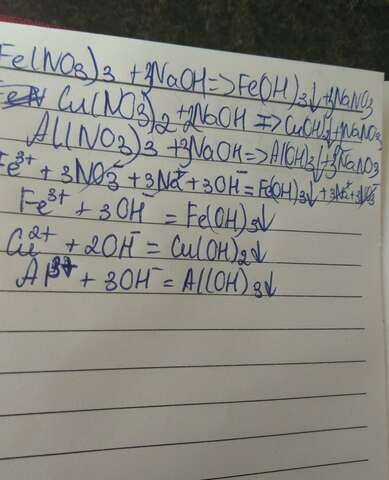 Fe(NO3)3 + 3NaOH => Fe(OH)3↓ + 3NaNO3
Cu(NO3)2 + 2NaOH => Cu(OH)2↓ + NaNO3
Al(NO3)3 + 3NaOH => Al(OH)3↓ + 3NaNO3
Fe3+ + 3NO3- + 3Na+ + 3OH- = Fe(OH)3↓ + 3Na+ + 3NO3-
Fe3+ + 3OH- = Fe(OH)3↓
Cu2+ + 2OH- = Cu(OH)2↓
Al3+ + 3OH- = Al(OH)3↓